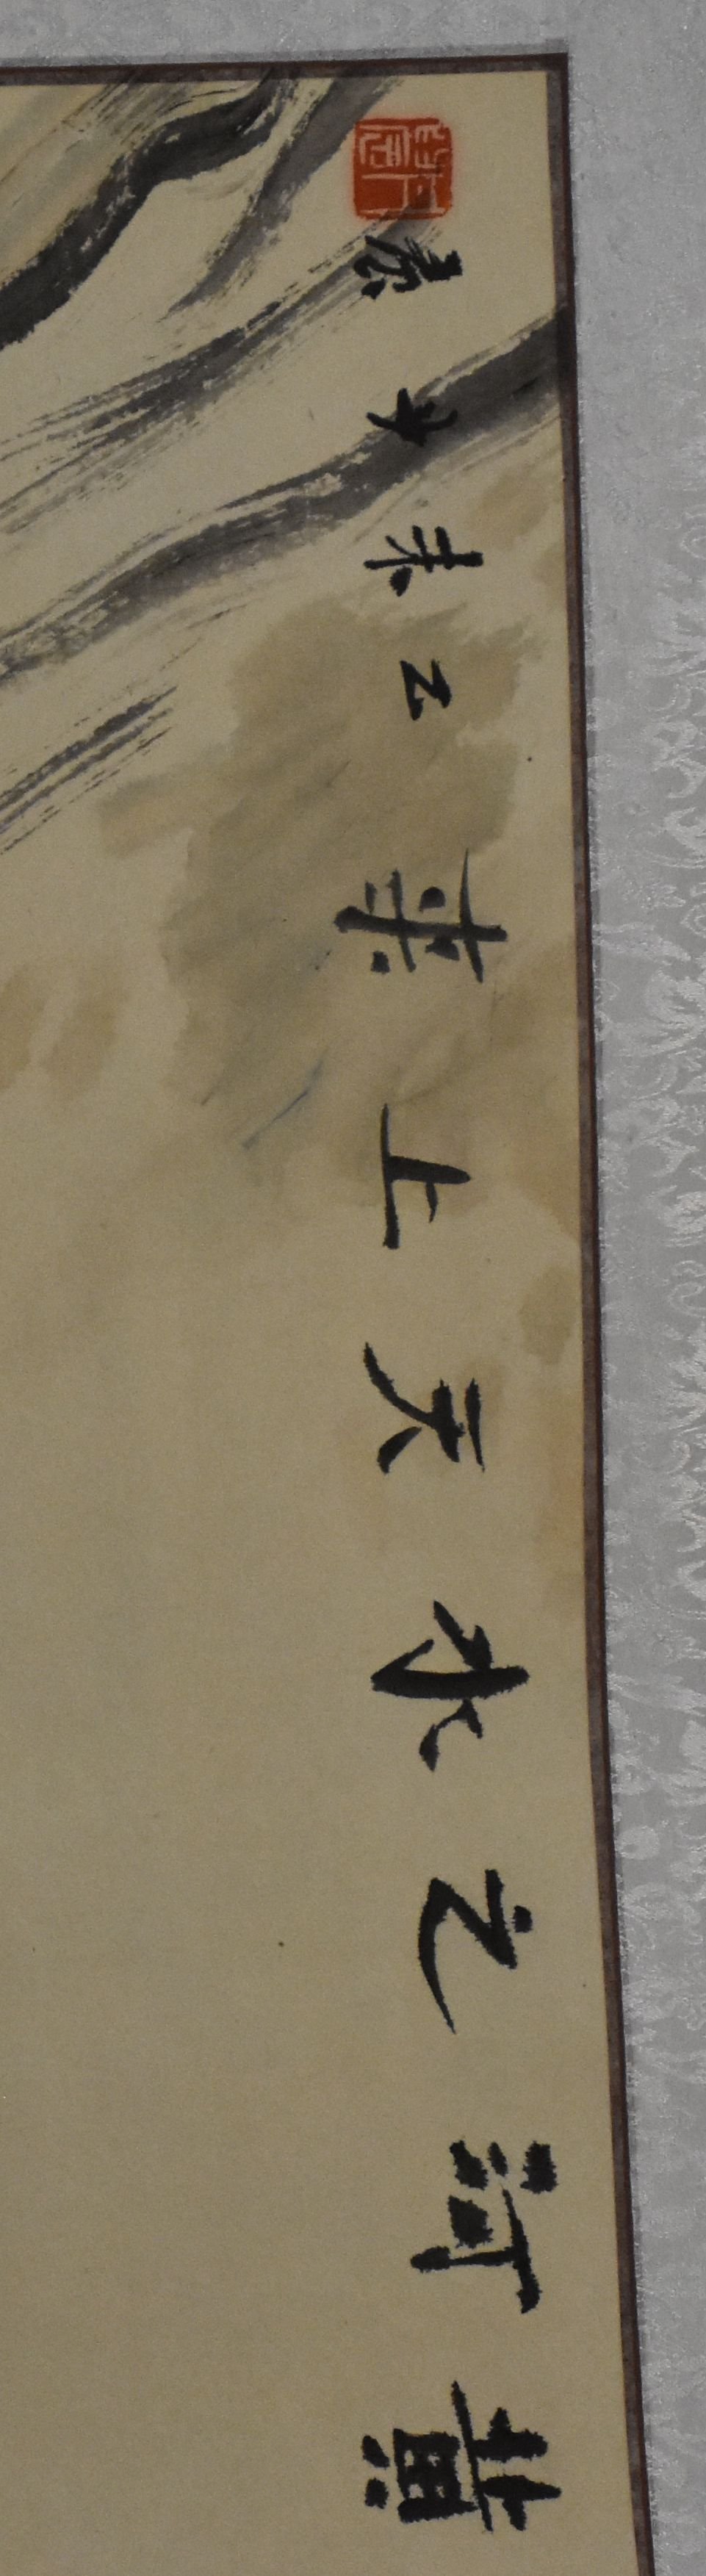 黄河之水天上來乙未